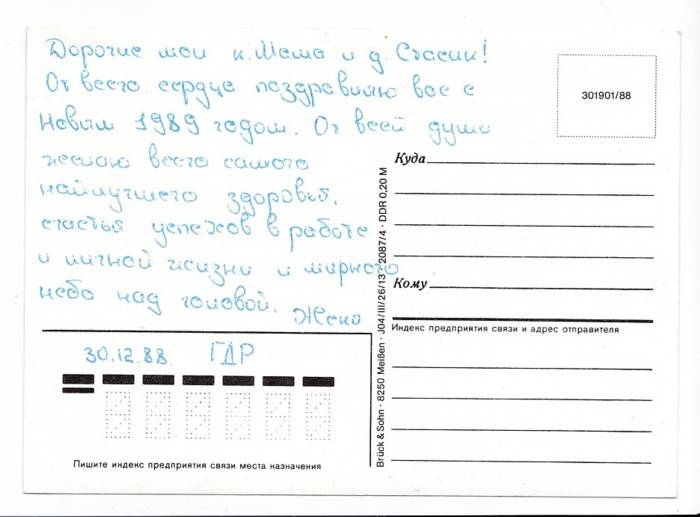 Дорогие мои к. Маша и д. Стасик!
От всего сердца поздравляю вас с
Новым 1989 годом. От всей души
желаю всего самого
найлучшего здоровья,
счастья успехов в работе
и личной жизни и мирного
небо над головой. Жено
30.12.88. ГДР
Пишите индекс предприятия связи места назначения
301901/88
Куда
Кому
Индекс предприятия связи и адрес отправителя
Brück & Sohn · 8250 Meißen · J04/III/26/13 · 2087/4 · DDR 0,20 M